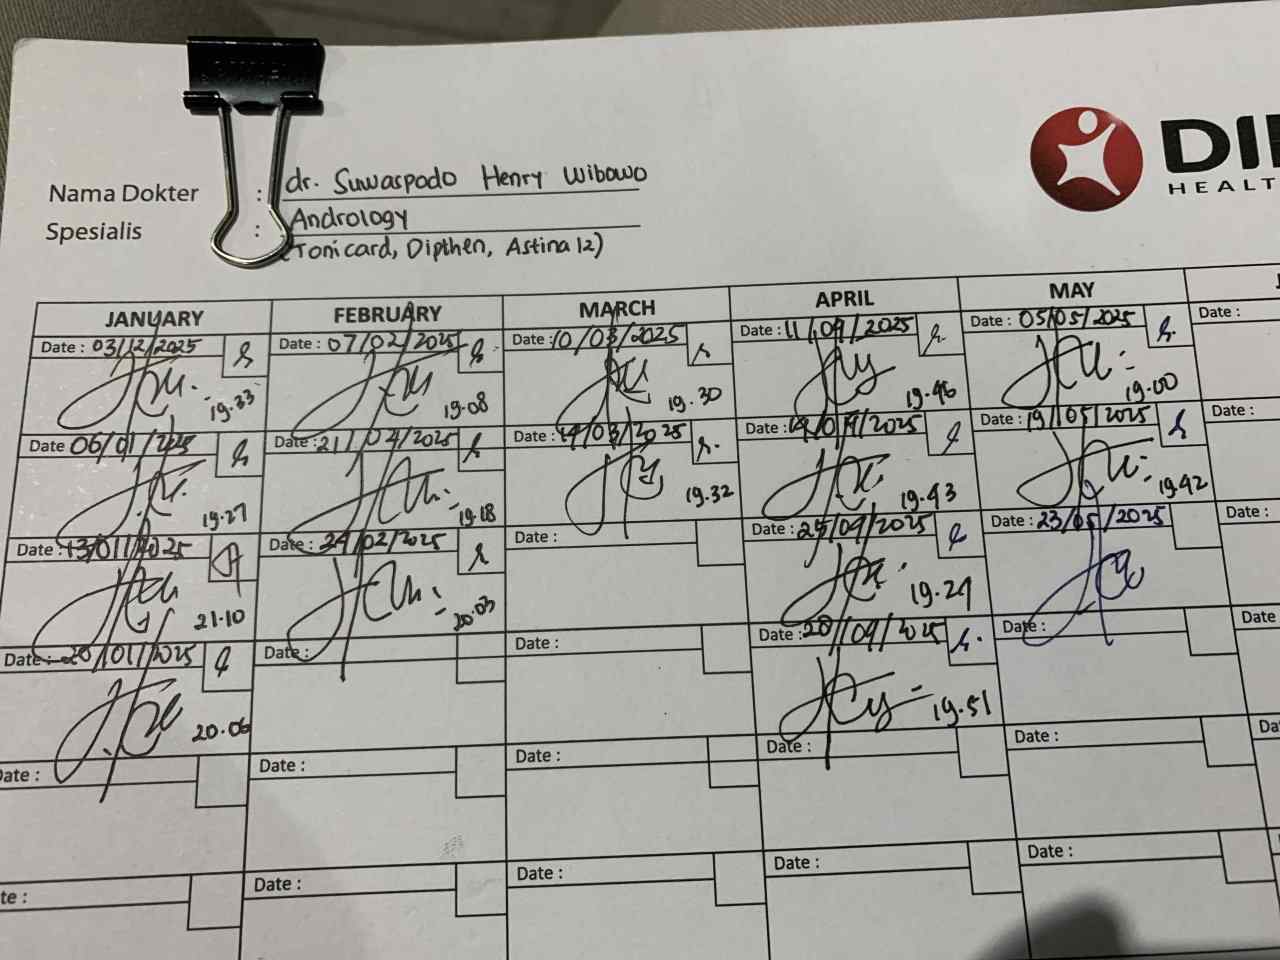 Nama Dokter : dr. Suwaspodo Henry Wibowo
Spesialis : Andrology
(Tonicard, Dipthen, Astina 12)
DI
HEALT
JANUARY FEBRUARY MARCH APRIL MAY
Date : 03/12/2025 Date : 07/02/2025 Date : 10/03/2025 Date : 11/09/2025 Date : 05/05/2025 Date :
19.33 19.08 19.30 19.46 19.00
Date 06/01/2025 Date : 21/04/2025 Date : 14/03/2025 Date : /2025 Date : 19/05/2025 Date :
19.27 19.18 19.32 19.43 19.42
Date : 13/01/2025 Date : 24/02/2025 Date : Date : 25/09/2025 Date : 23/05/2025 Date :
21.10 20.03 19.29
Date : 20/01/2025 Date : Date : Date : 28/09/2025 Date : Date
20.06 19.51
Date : Date : Date : Date : Date : Da
te : Date : Date : Date : Date :